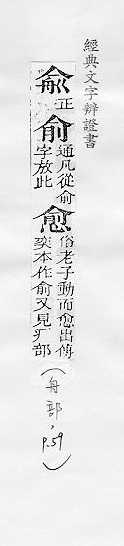 經典文字辨證書
兪正俞通凡從俞字放此愈俗老子動而愈出傅奕本作俞又見疒部(舟部,p.59)